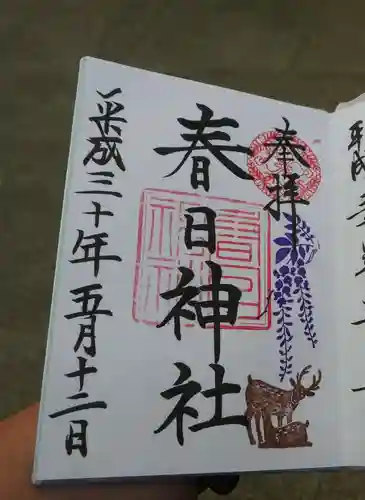 奉拝
春日神社
平成三十年五月十二日